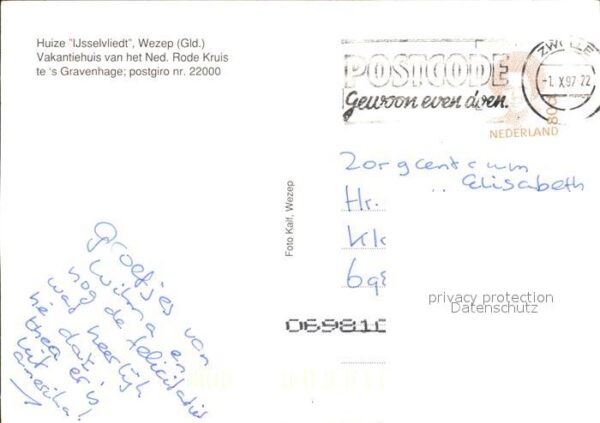 Huize "IJsselvliedt", Wezep (Gld.)
Vakantiehuis van het Ned. Rode Kruis
te 's Gravenhage; postgiro nr. 22000
POSTCODE
Gewoon even doen.
ZWOLLE
-1.X.97.22
80c
NEDERLAND
Zorgcentrum
Elisabeth
Hr.
Kl
698
privacy protection
Datenschutz
Foto Kalf, Wezep
Groetjes van
Wilma en
nog de felicitaties
wat heerlijk
hè dat
er is
uit
amerika!